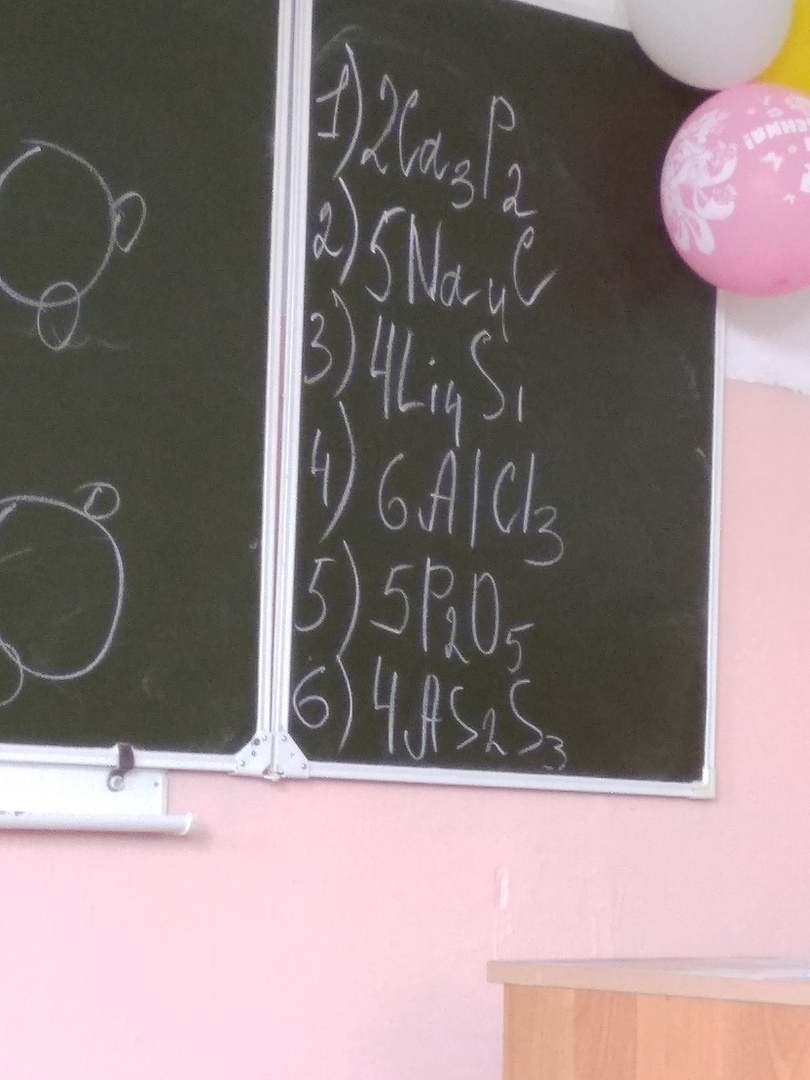 1) 2Ca₃P₂
2) 5Na₄C
3) 4Li₄Si
4) 6AlCl₃
5) 5P₂O₅
6) 4As₂S₃